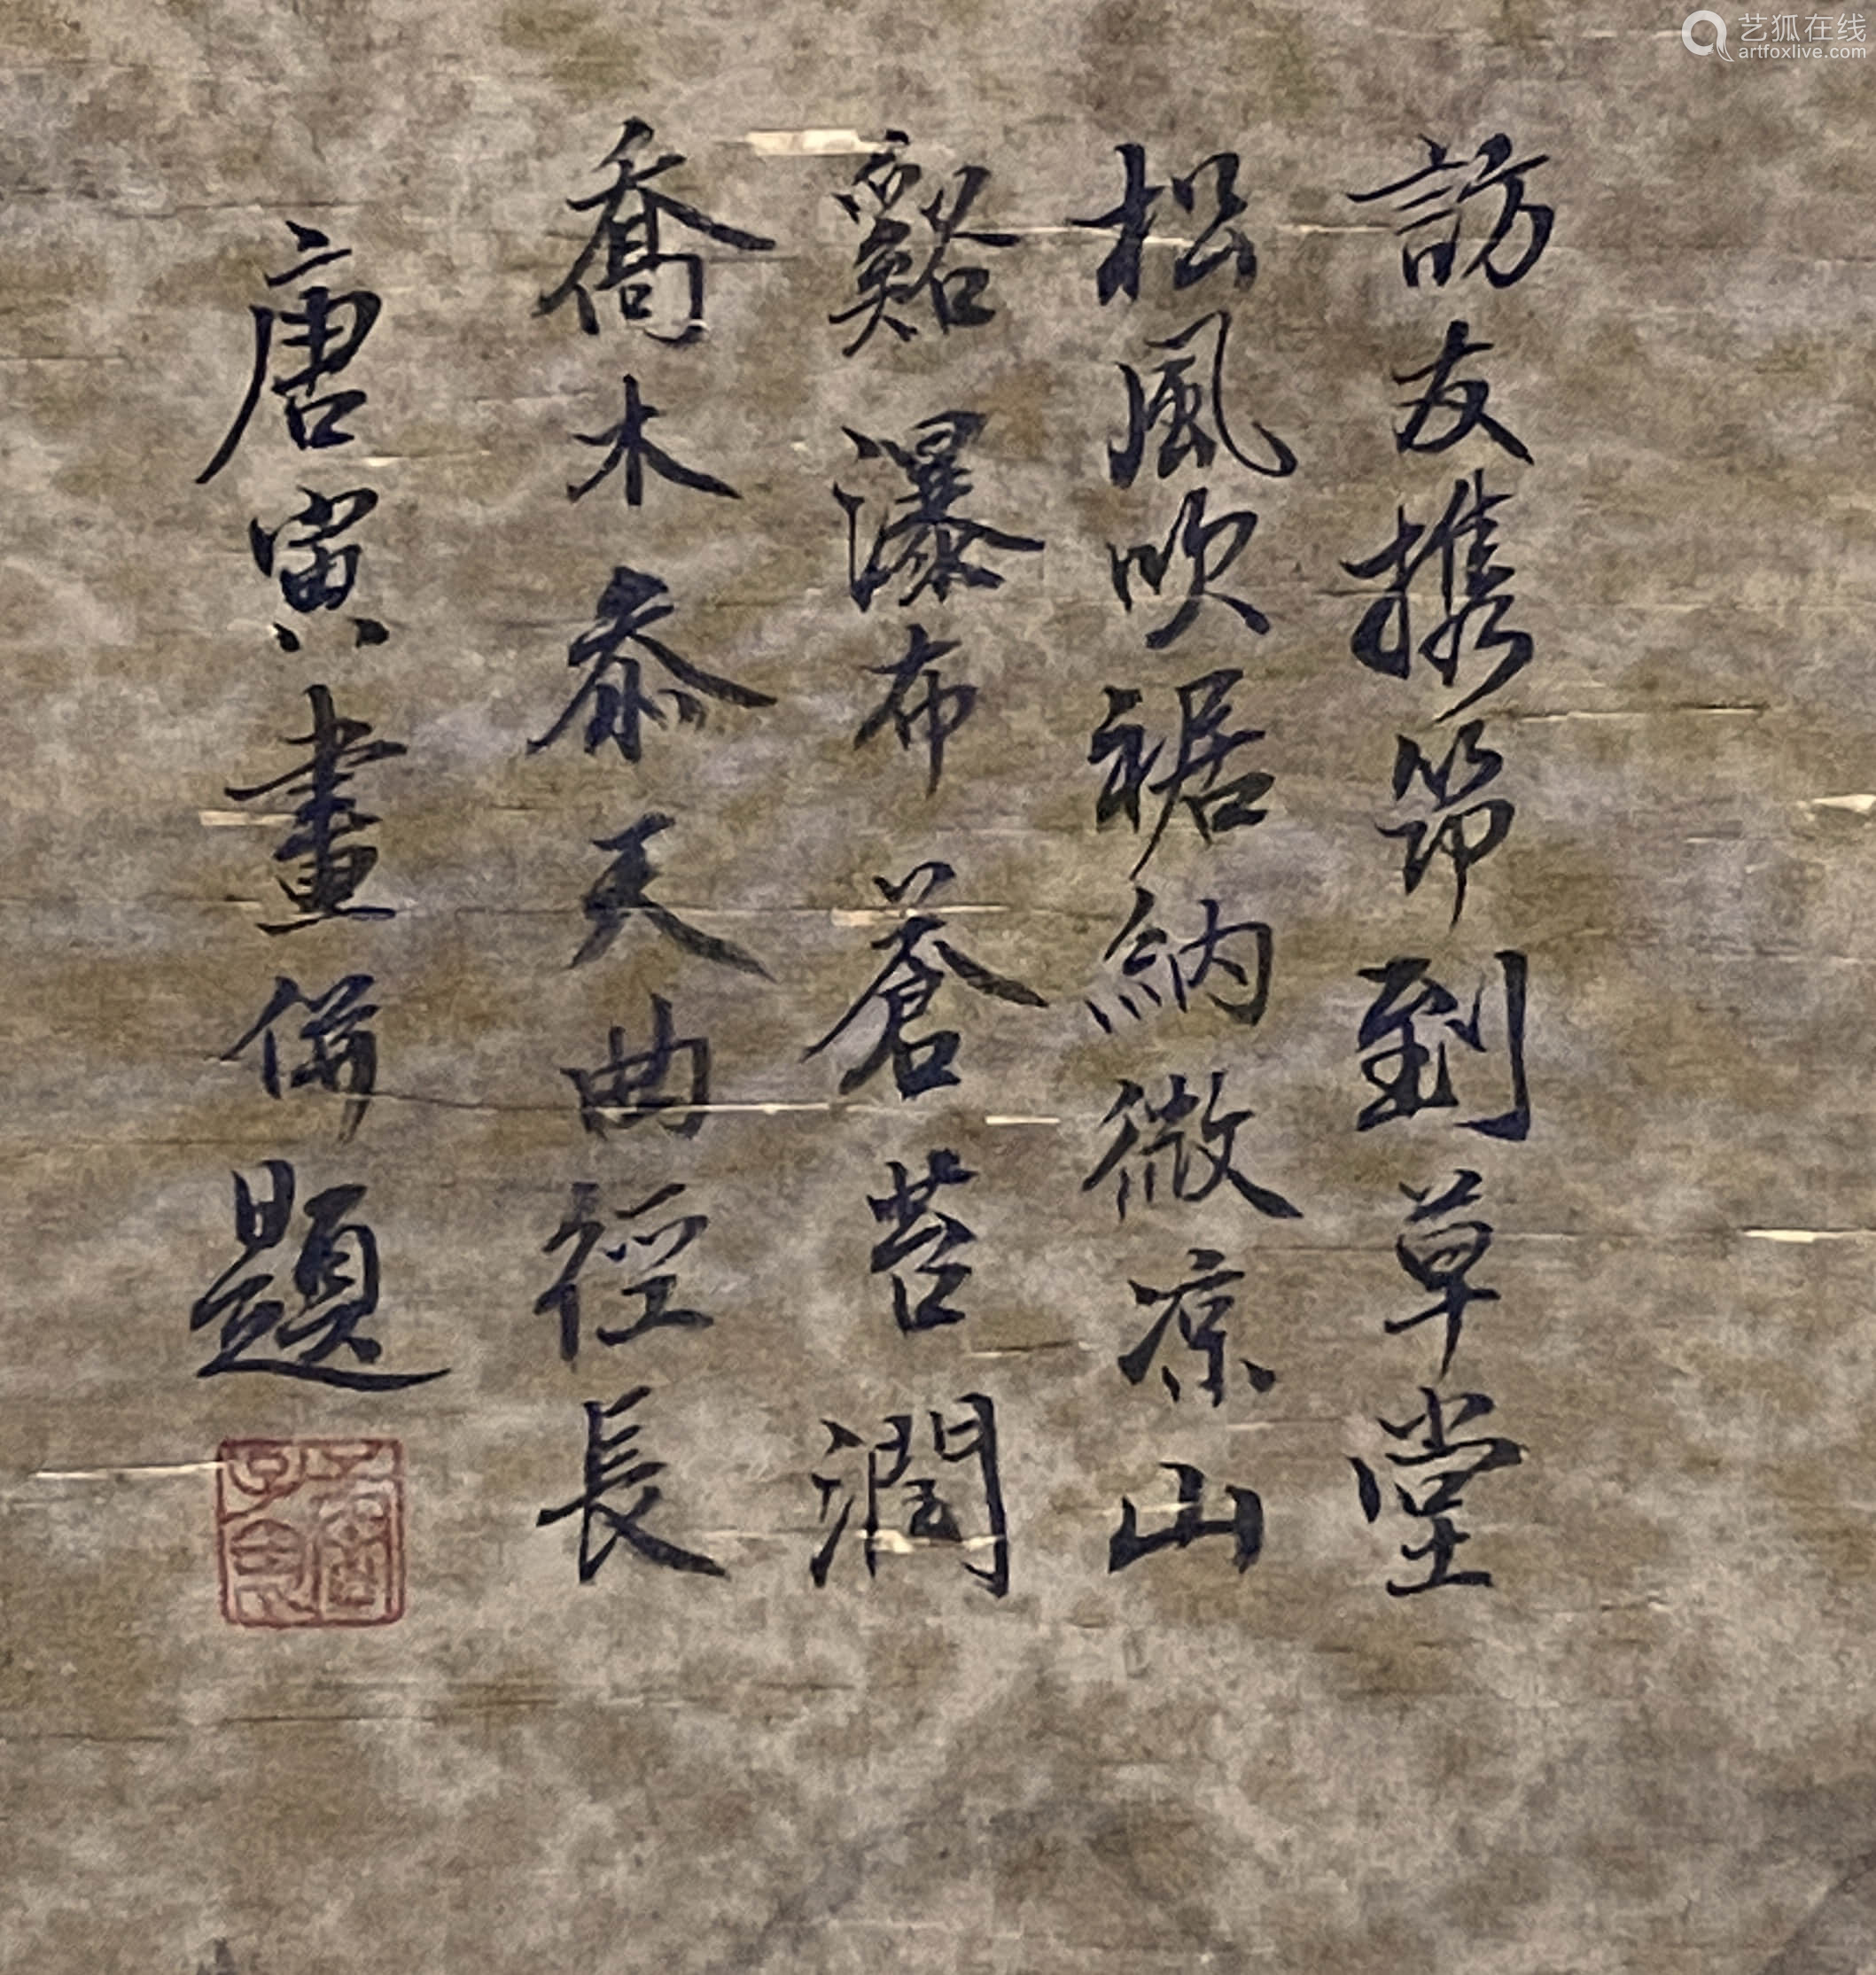 訪友携笻到草堂
松風吹裾納微凉山
谿瀑布蒼苔潤
喬木泰天曲徑長
唐寅畫併題
艺狐在线
artfoxlive.com